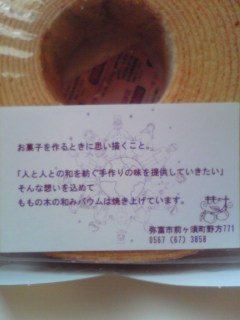 お菓子を作るときに思い描くこと。
「人と人との和を紡ぐ手作りの味を提供していきたい」
そんな想いを込めて
ももの木の和みバウムは焼き上げています。
弥富市前ヶ須町野方771
0567 (67) 3858